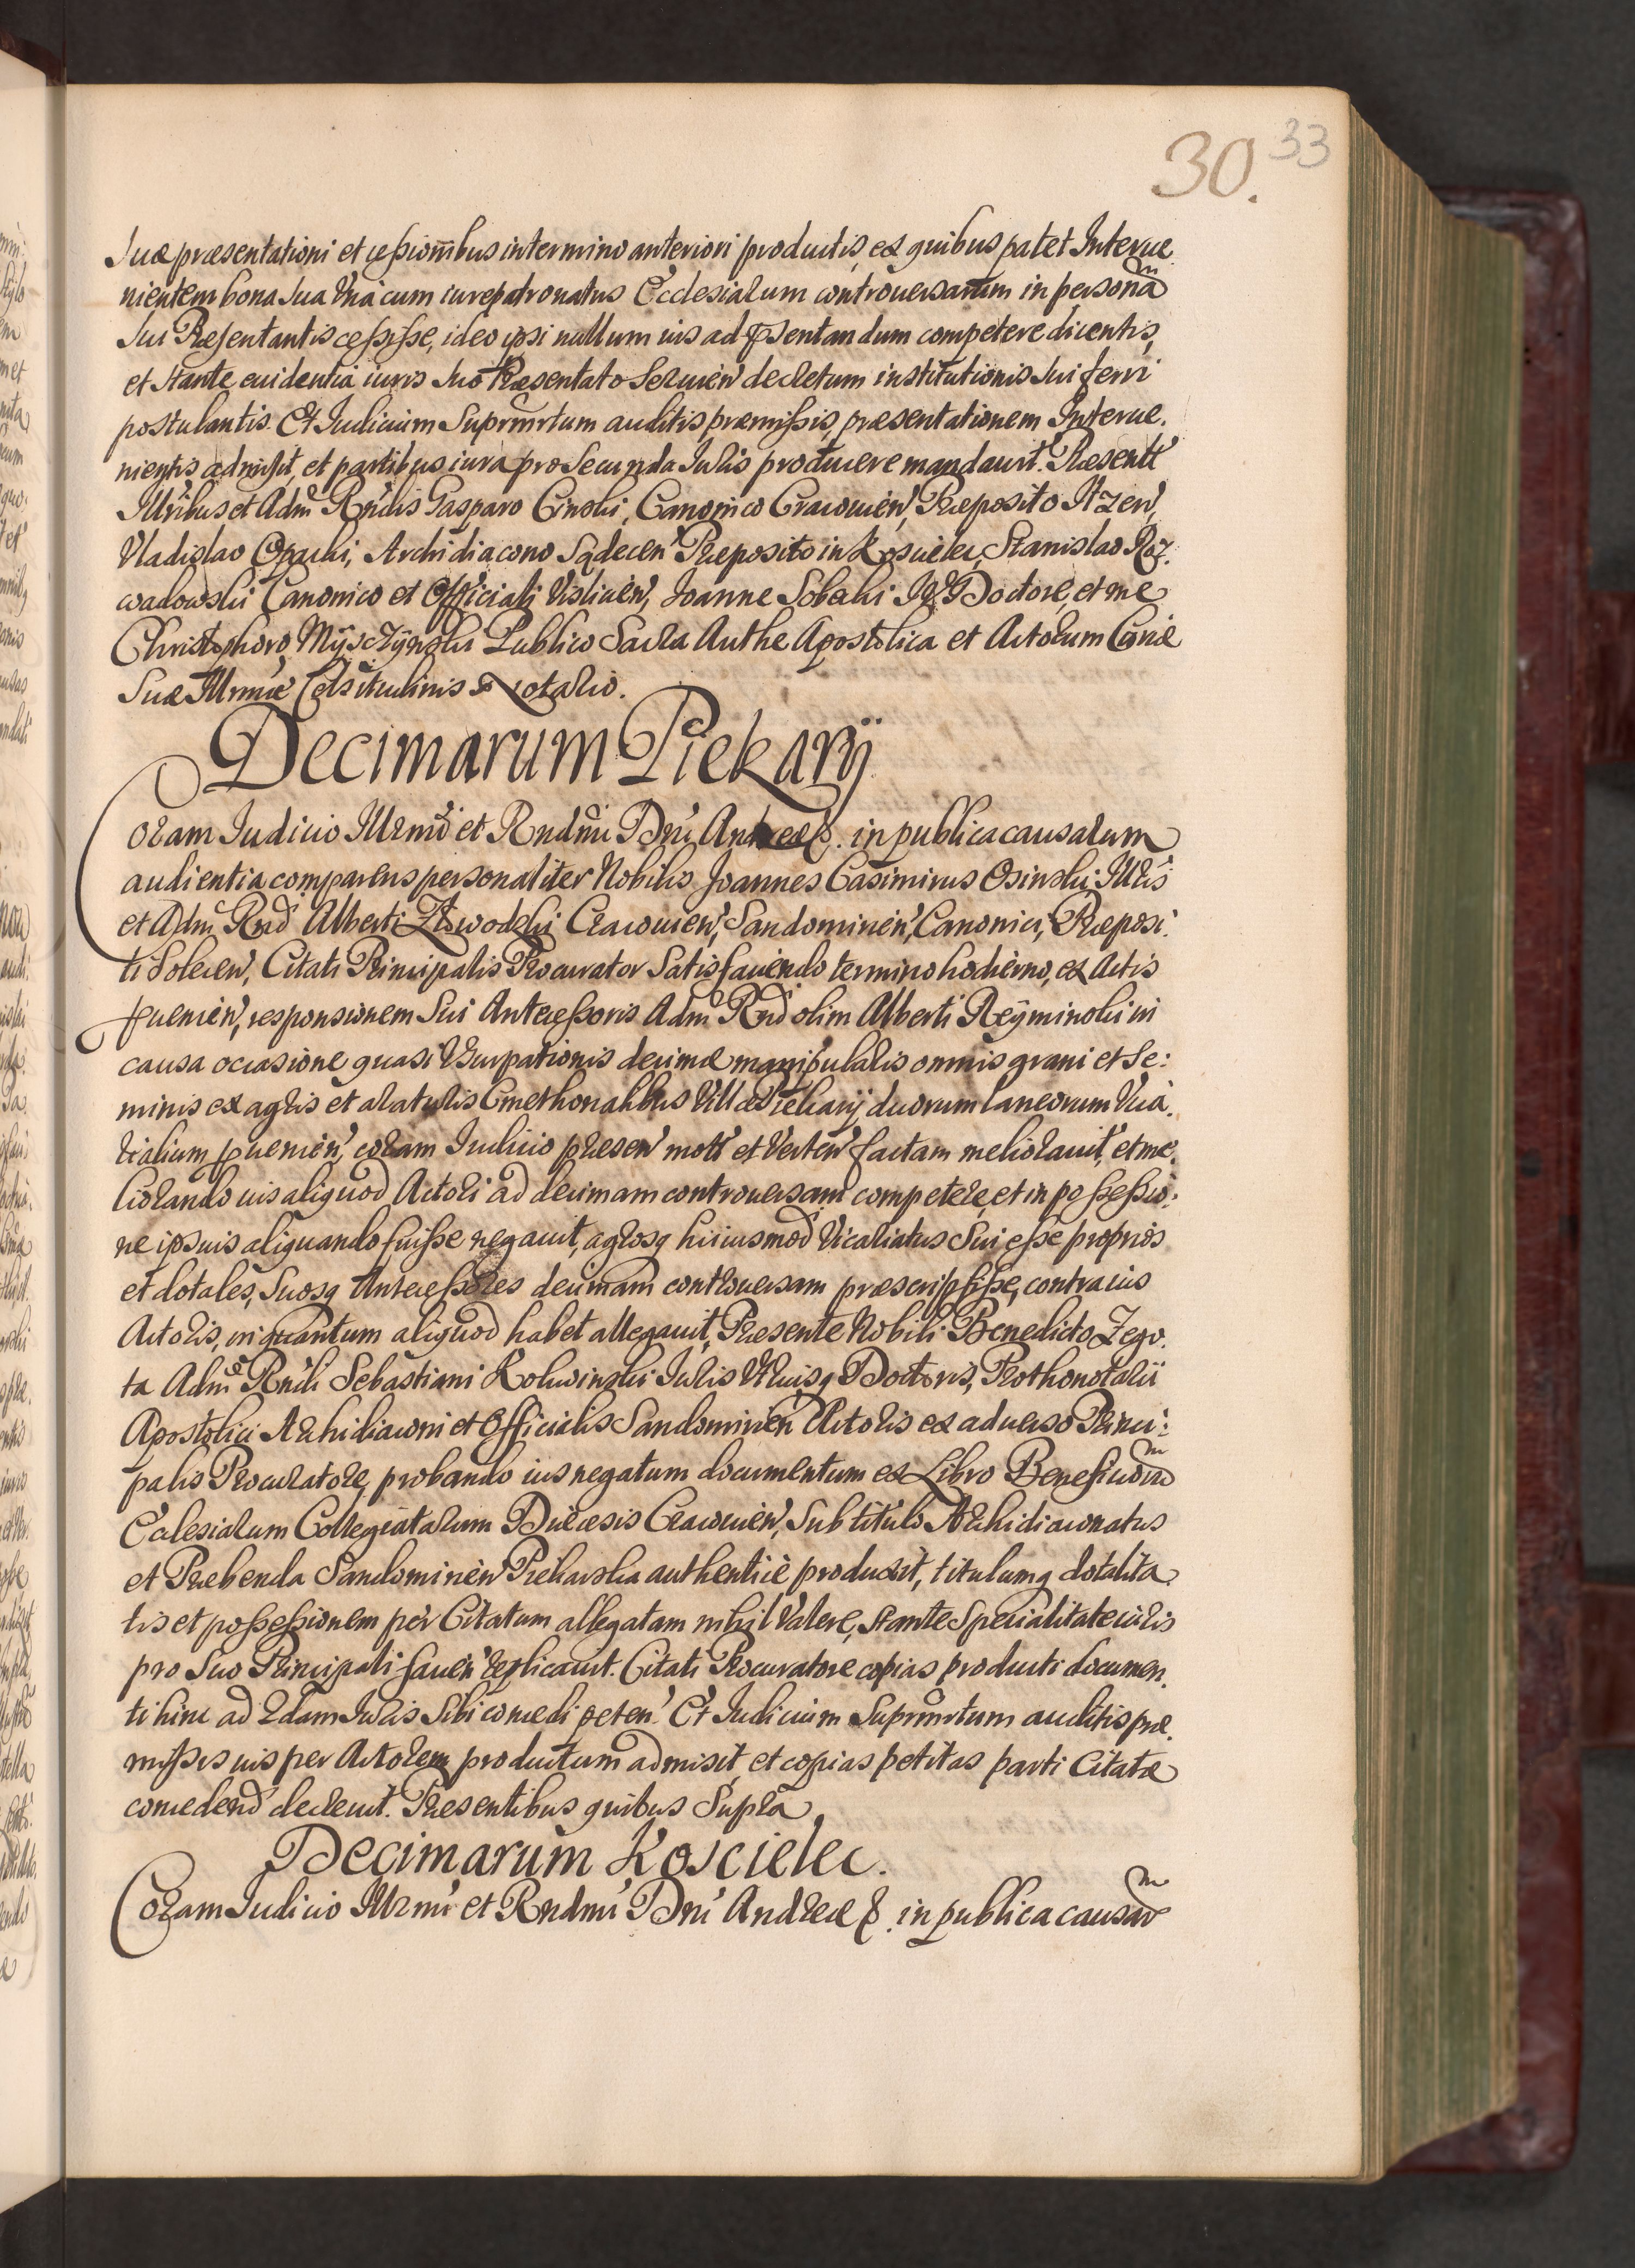 30. 33
suæ præsentationi et cessionibus in termino anteriori productis, ex quibus patet Interue
nientem bona sua vna cum iurepatronatus Ecclesiarum controuersarum in personam
sui Præsentantis cessisse, ideo ipsi nullum ius ad præsentandum competere dicentis,
et stante euidentia iuris suo Præsentato seruien decretum institutionis sui ferri
postulantis. Et Iudicium Suprmrtum auditis præmissis, præsentationem Interue.
nientis admisit, et partibus iura pro secunda Iuris producere mandauit. Præsentt
Illribus et Adm Rndis Gasparo Cinski, Canonico Cracouien, Præposito Ilzen,
Vladislao Opacki, Archidiacono Sądecen Præposito in Kosuelec, Stanislao Roz.
wadowski Canonico et Officiali Visliuen, Joanne Sobecki IVDoctore, et me
Christophoro Mysczÿnski Publico Sacra Authe Apostolica et Actorum Curiæ
Suæ Illrmæ Celsitudinis Notario.
Decimarum Piekarÿ
Coram Iudicio Illrmi et Rndmi Dni Andreæ &. in publica causarum
audientia comparens personaliter Nobilis Joannes Casimirus Osinski Illris
et Adm Rnd Alberti Zawodzki Cracouien, Sandomirien, Canonici, Præposi.
ti Solecen, Citati Principalis Procurator satisfaciendo termino hodierno, ex Actis
prouenien, responsionem sui Antecessoris Adm Rnd olim Alberti Reÿminski in
causa occasione quasi Vsurpationis decimæ manipularis omnis grani et se:
minis ex agris et araturis Cmethonalibus Villæ Piekarÿ duorum laneorum Vica.
rialium prouenien, coram Iudicio præsen mott et Verten factam meliorauit, et me.
liorando ius aliquod Actori ad decimam controuersam competere, et in possessio.
ne ipsius aliquando fuisse negauit, agrosq huiusmod Vicariatus sui esse proprios
et dotales, suosq Antecessores decimam controuersam præscripsisse, contra ius
Actoris, in quantum aliquod habet allegauit, Præsente Nobili Benedicto Zego.
ta Adm Rndi Sebastiani Kokwinski Iuris Vtriusq Doctoris, Prothonotarij
Apostolici Archidiaconi et Officialis Sandomirien Actoris ex aduerso Princi:
palis Procuratore, probando ius negatum documentum ex Libro Beneficiorum
Ecclesiarum Collegiatarum Diœcesis Cracouien, sub titulo Archidiaconatus
et Præbenda Sandomirien Piekarska authenticè produxit, titulumq dotalita.
tis et possessionem per Citatum allegatam nihil Valere, stante specialitate iuris
pro suo Principali facien replicauit. Citati Procuratore copias producti documen.
ti hinc ad 2dam Iuris sibi concedi peten. Et Iudicium Suprmrtum auditis præ.
missis ius per Actorem productum admisit, et copias petitas parti Citatæ
concedend decreuit. Præsentibus quibus Supra
Decimarum Koscielec.
Coram Iudicio Illrmi et Rndmi Dni Andreæ &. in publica causarum